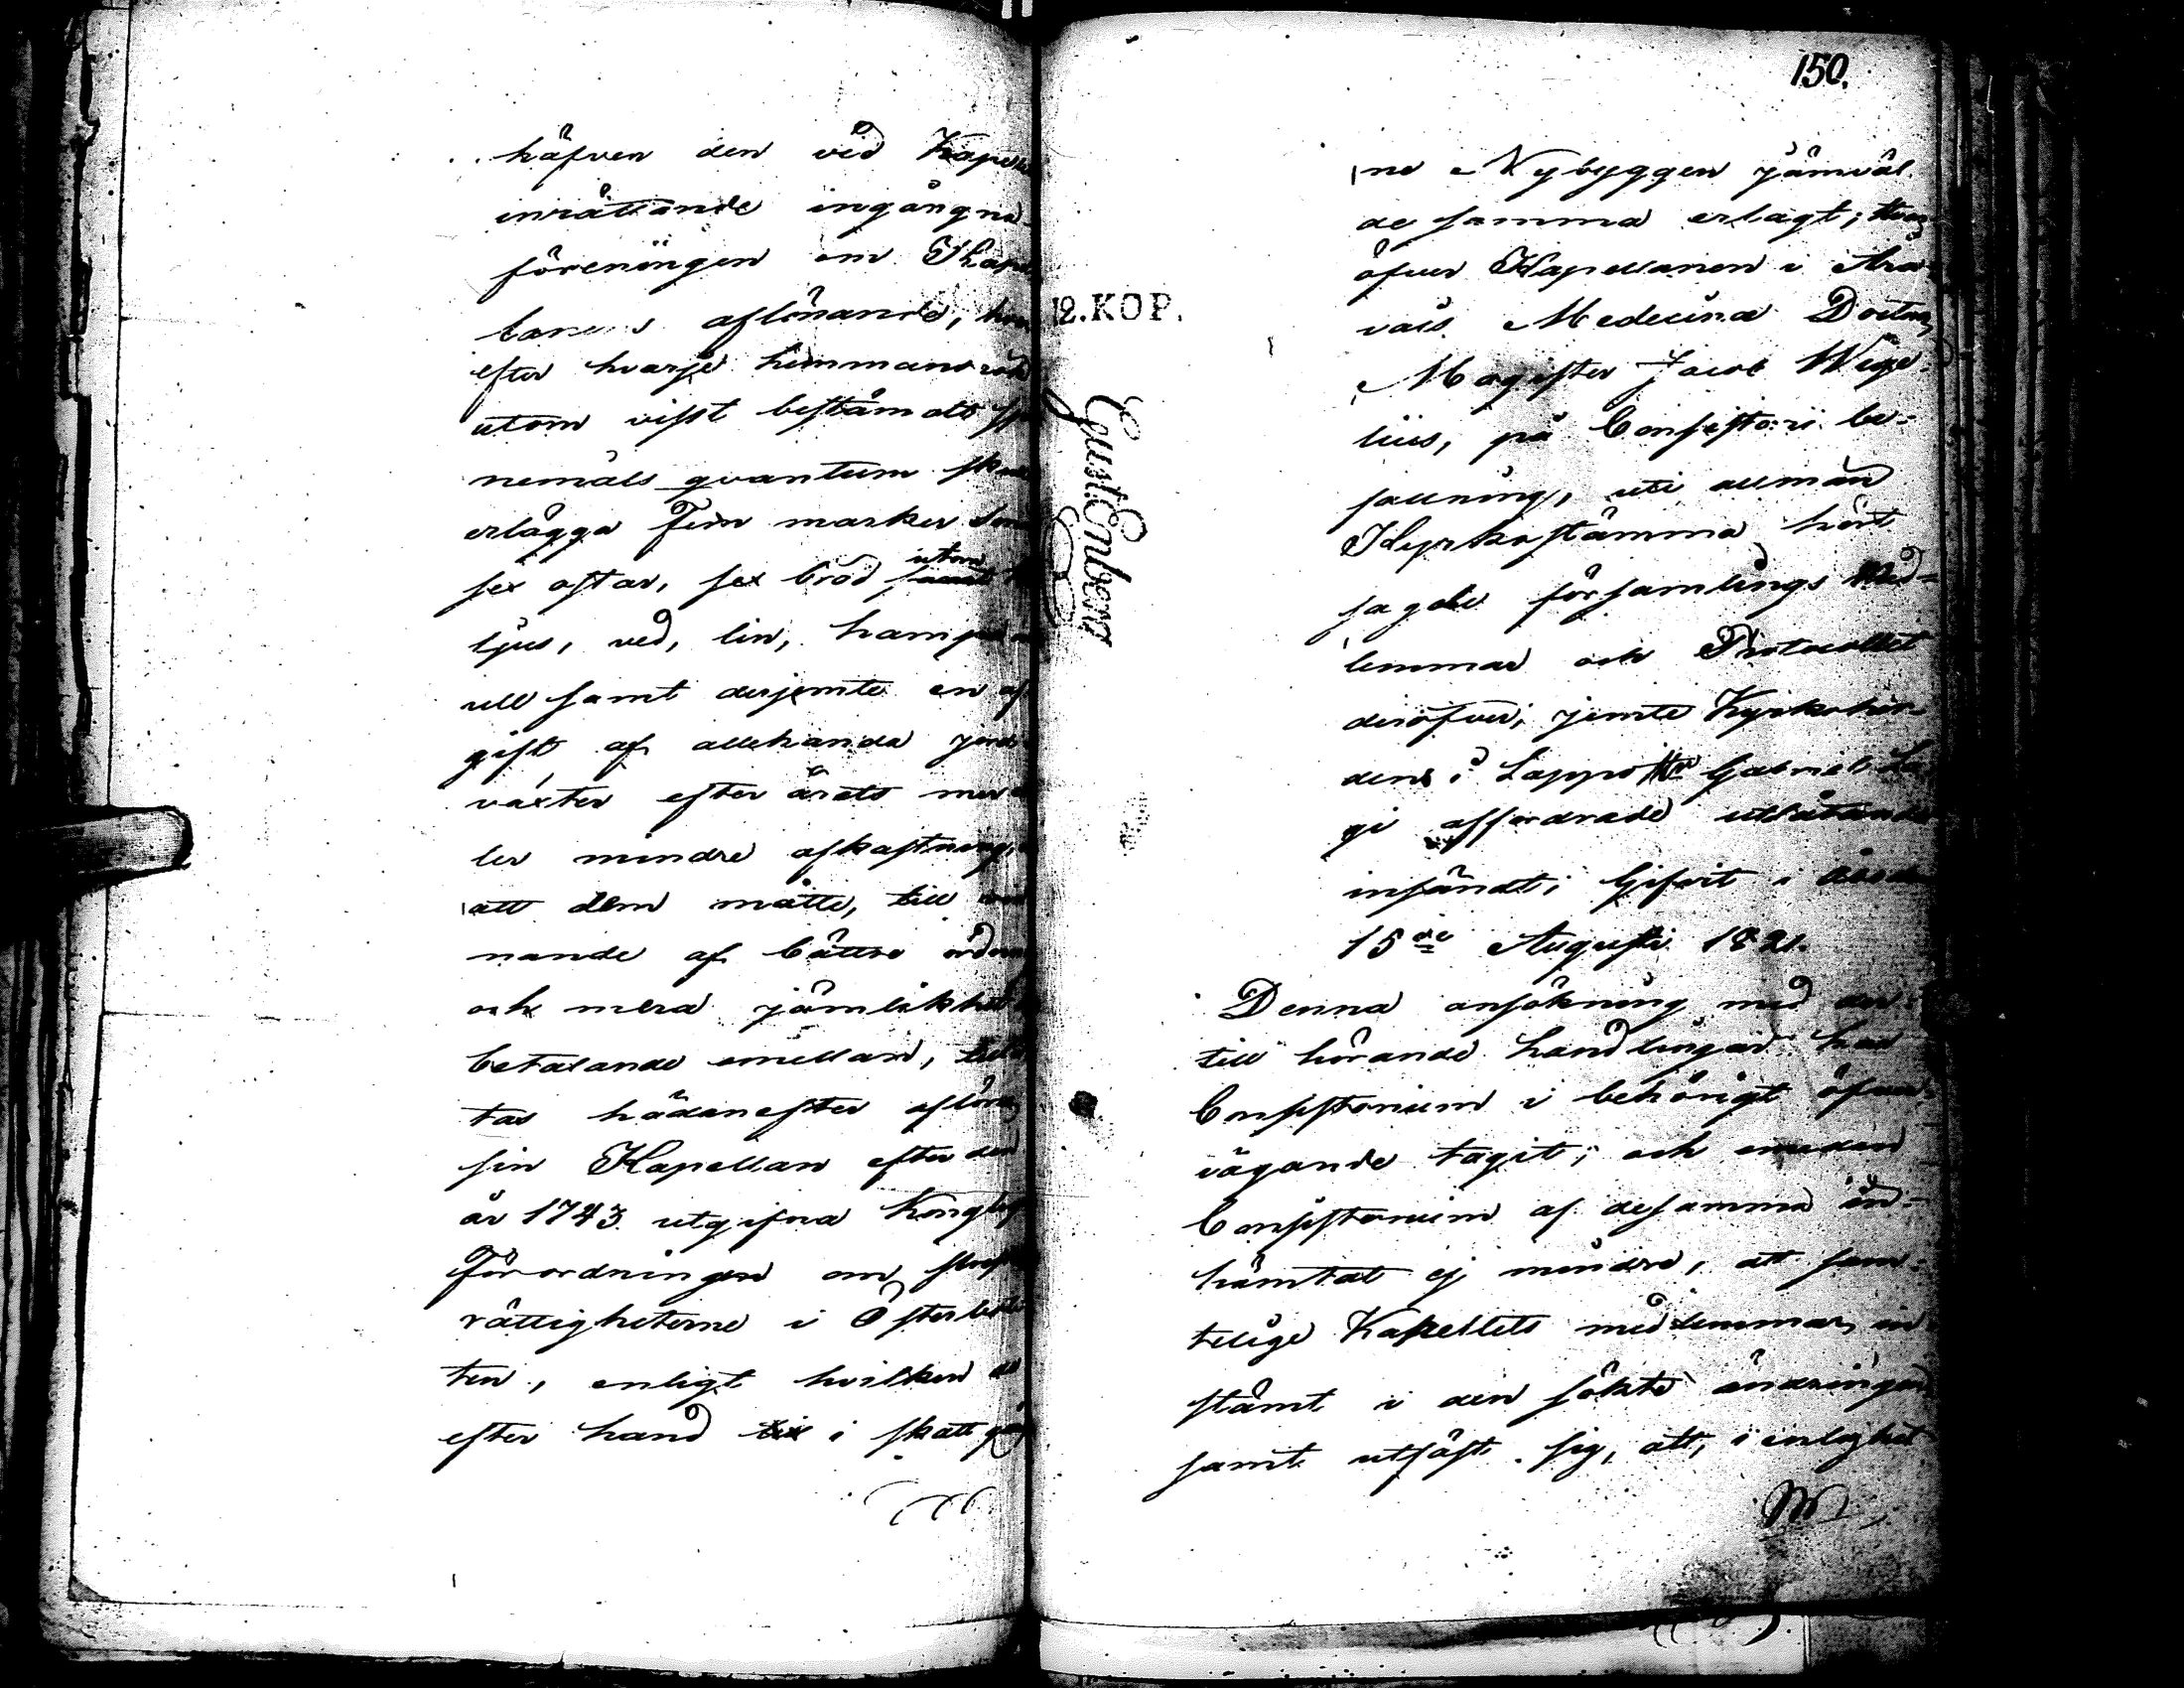 häfven den vid Kapell
inrättande ingångna
föreningen om Kapel
lanens aflönande, hvar
efter hvarje hemmans rök
utom visst bestämdt
nemåls quantum skulle
erlägga Fem marker Smör
sex ostar, sex bröd utom
ljus, ved, lin, hampa
ull samt derjemte en af
gift af allehanda jord
växter efter årets mer
ler mindre afkastning,
att dem måtte, till
nande af bättre ordning
och mera jämlikhet
betalande emellan, tillå
tas hädanefter aflöna
sin Kapellan efter den
år 1743 utgifna Kongliga
Förordningen om
rättigheterne i Österbot
ten, enligt hvilken de
efter hand i skatt gång
150.
ne Nybyggen jämväl
de samma erlagt; Hvar
öfver Kapellanen i Ära-
vais Medecinæ Doctor,
Magister Jacob Wege-
lius, på Consistorii be-
fallning, uti allmän
Kyrkostämma hört
sagde församlings Med-
lemmar och Protocollet
deröfver, jemte Kyrkoher-
dens i Lappo Gabriel
gi affordrade utlåtande
insändt; Gifvit i Åbo den
15de Augusti 1821.
Denna ansökning med der-
till hörande handlingar har
Consistorium i behörigt öfver-
vägande tagit; och emedan
Consistorium af desamma in-
hämtat ej mindre, att sam-
telige Kapellets medlemmar in-
stämt i den sökte ändringen
samt utfäst sig, att, i enlighet
12.KOP.
Gust. Enberg